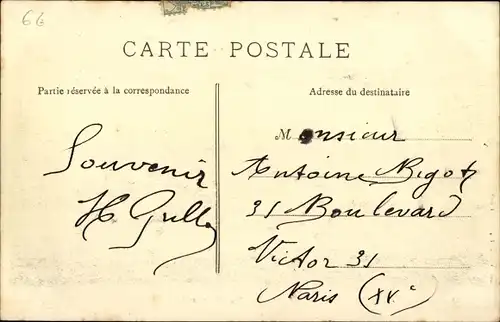 66
CARTE POSTALE
Partie réservée à la correspondance
Adresse du destinataire
Souvenir
Monsieur
Antoine Bigot
31 Boulevard
Victor 31
Paris (XVe)